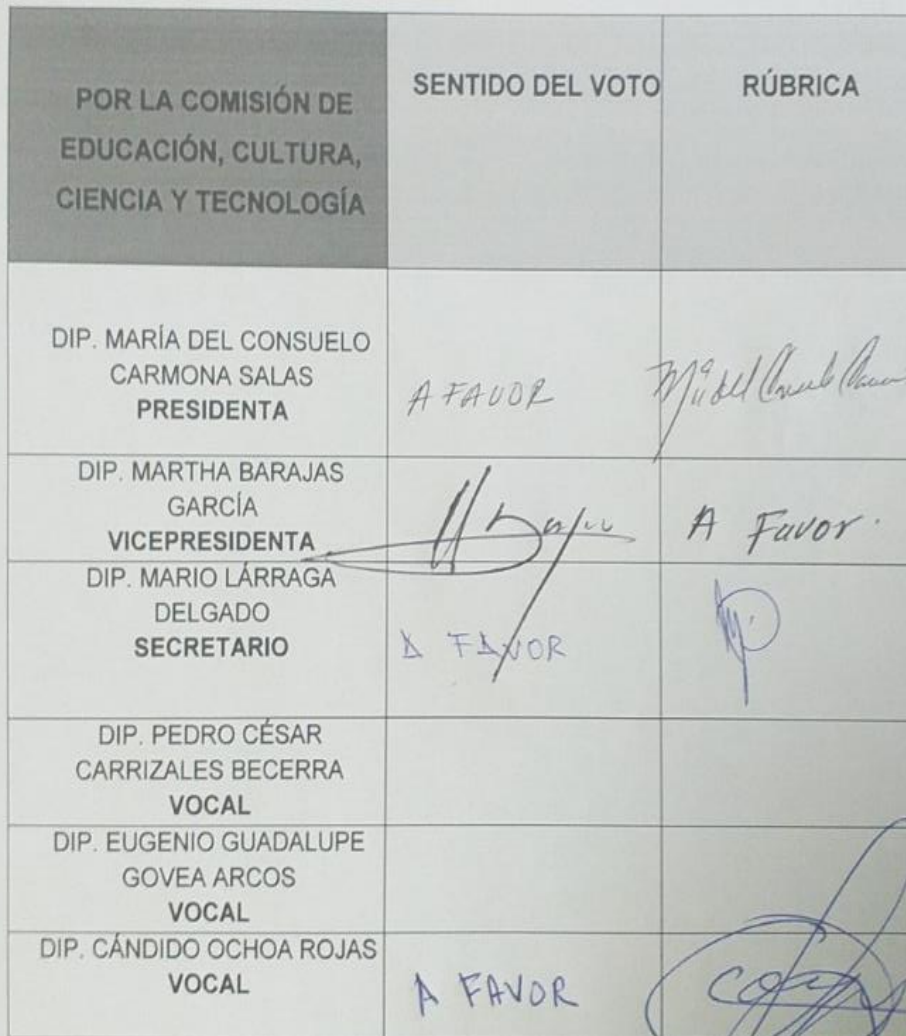 POR LA COMISIÓN DE
EDUCACIÓN, CULTURA,
CIENCIA Y TECNOLOGÍA
SENTIDO DEL VOTO
RÚBRICA
DIP. MARÍA DEL CONSUELO
CARMONA SALAS
PRESIDENTA
A FAVOR
DIP. MARTHA BARAJAS
GARCÍA
VICEPRESIDENTA
A Favor.
DIP. MARIO LÁRRAGA
DELGADO
SECRETARIO
A FAVOR
DIP. PEDRO CÉSAR
CARRIZALES BECERRA
VOCAL
DIP. EUGENIO GUADALUPE
GOVEA ARCOS
VOCAL
DIP. CÁNDIDO OCHOA ROJAS
VOCAL
A FAVOR